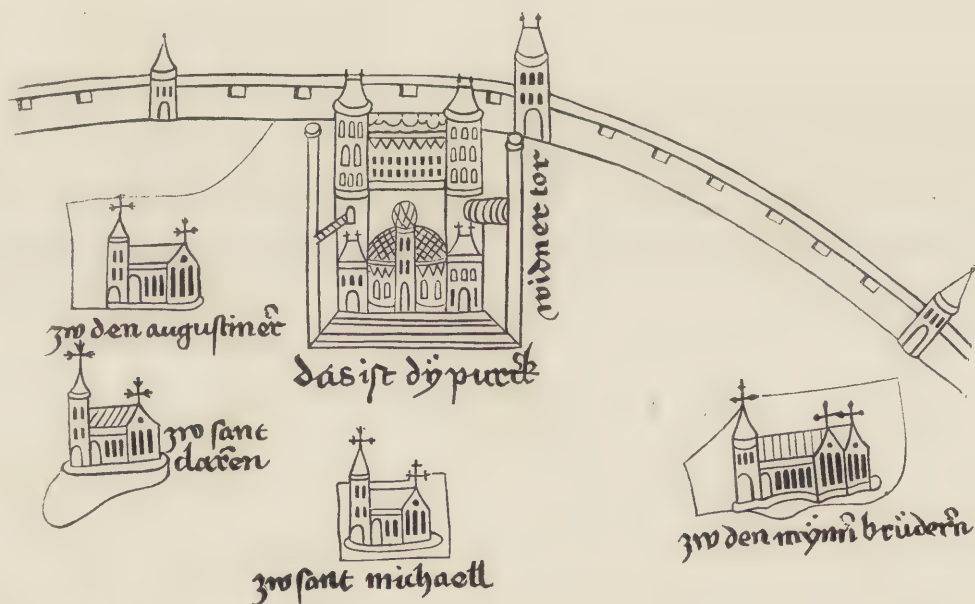 widner tor
zw den augustiner
das ist dÿ purck
zw sant
claren
zw sant michaell
zw den mynn brüdern